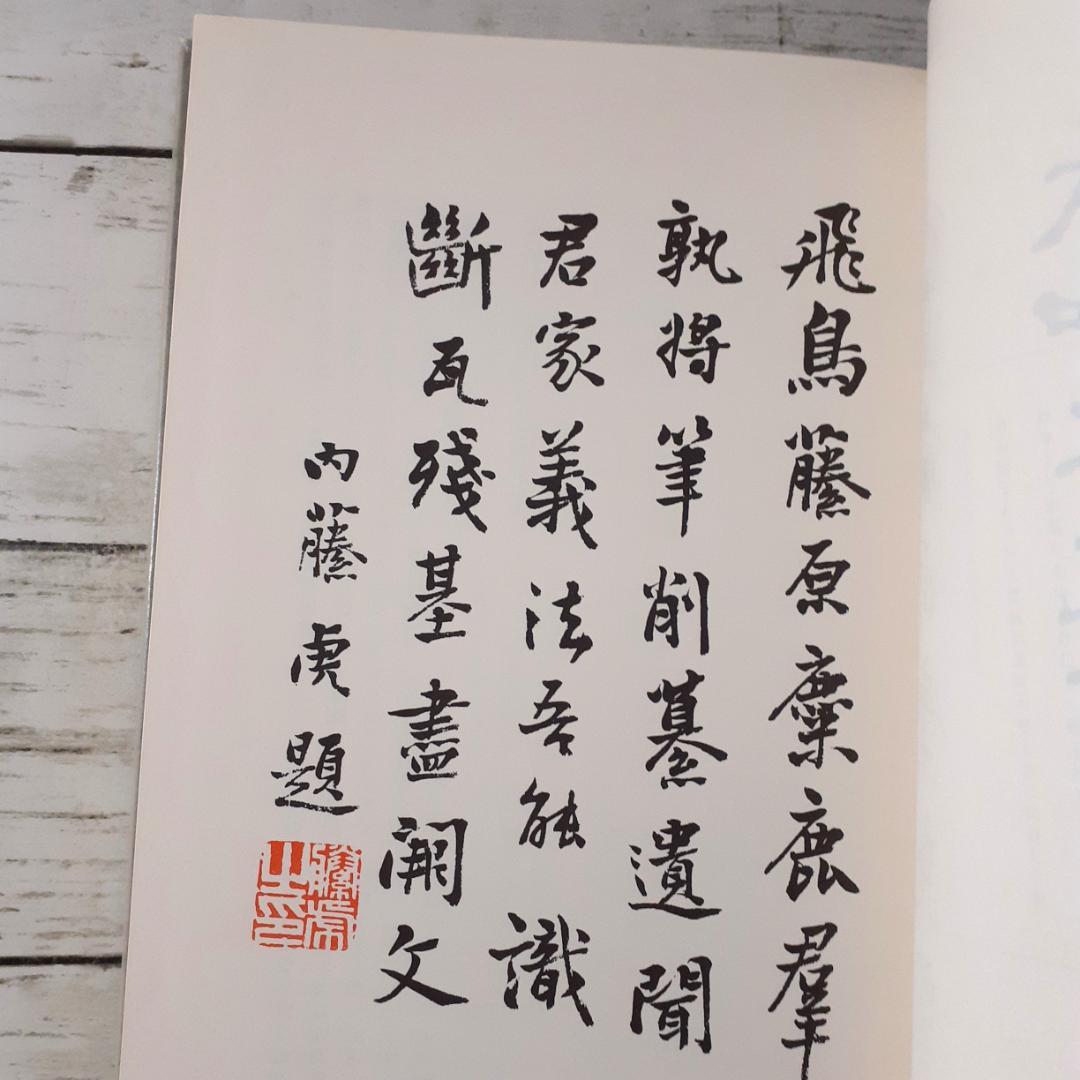 飛鳥藤原麋鹿羣
孰將筆削纂遺聞
君家義法吾能識
斷瓦殘基盡闕文
內藤虎題
藤虎之印